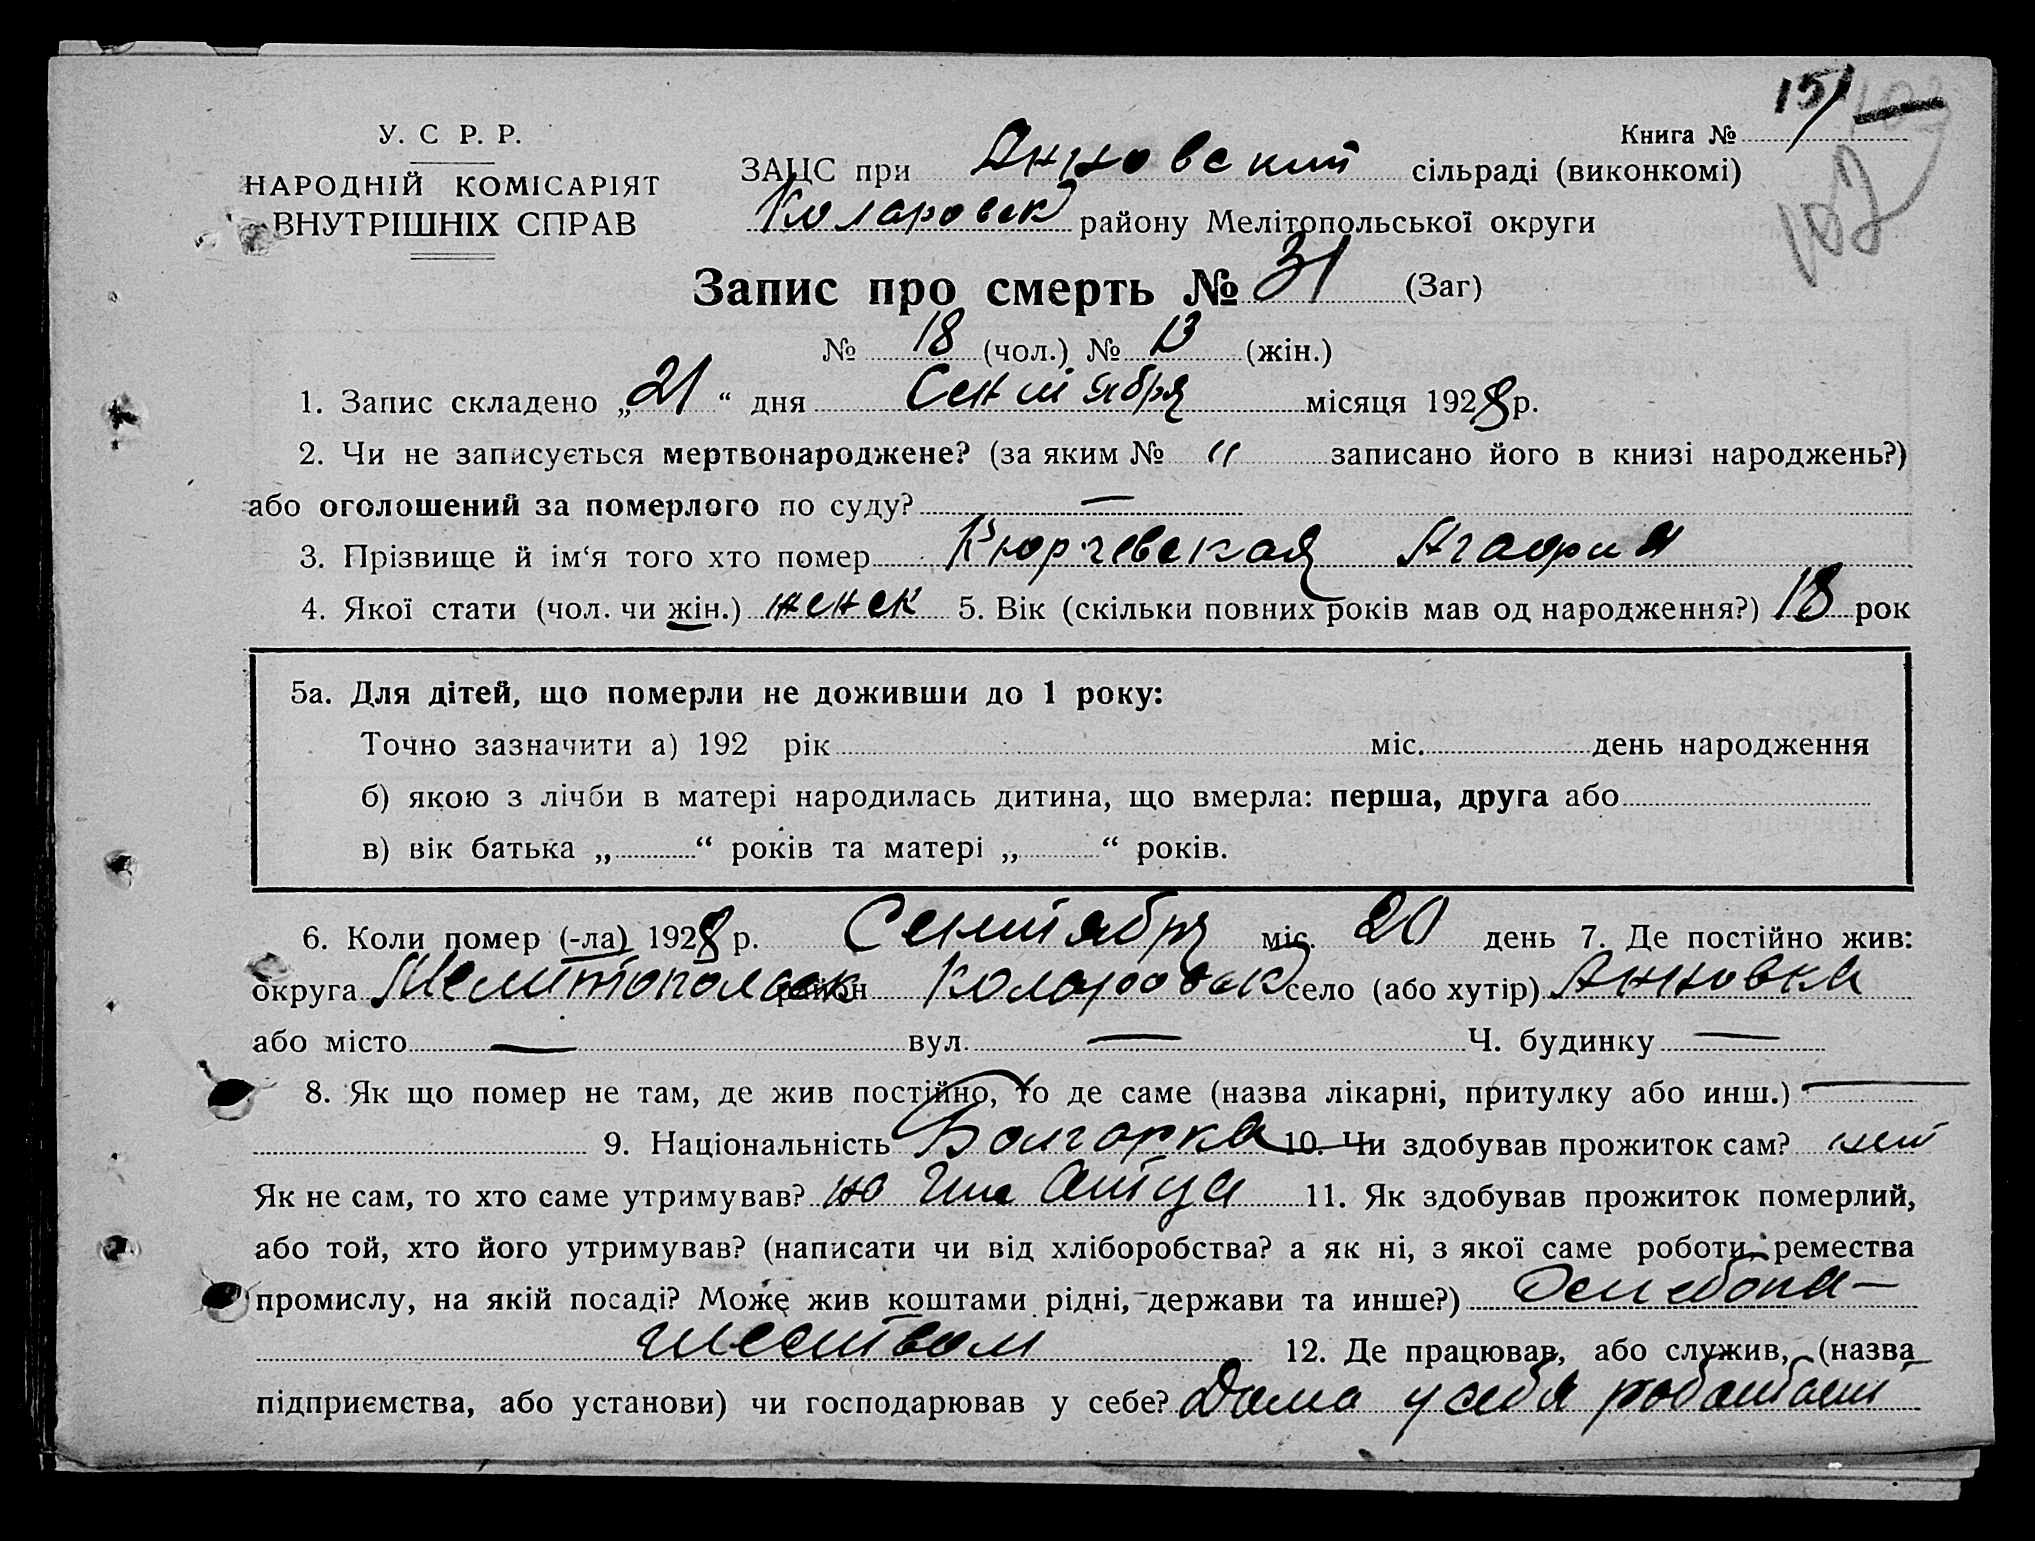 151
Книга №
102
У. С Р. Р.
НАРОДНІЙ КОМІСАРІЯТ
ВНУТРІШНІХ СПРАВ
ЗАЦС при Анновский сільраді (виконкомі)
Коларовск району Мелітопольської округи
Запис про смерть № 31 (Заг)
№ 18 (чол.) № 13 (жін.)
1. Запис складено „21“ дня Сентября місяця 1928 р.
2. Чи не записується мертвонароджене? (за яким № " записано його в книзі народжень?)
або оголошений за померлого по суду? —
3. Прізвище й ім‘я того хто помер Кюрчевская Агафия
4. Якої стати (чол. чи жін.) женск 5. Вік (скільки повних років мав од народження?) 18 рок
5а. Для дітей, що померли не доживши до 1 року:
Точно зазначити а) 192 рік міс. день народження
б) якою з лічби в матері народилась дитина, що вмерла: перша, друга або
в) вік батька „ “ років та матері „ “ років.
6. Коли помер (-ла) 1928 р. Сентября міс. 20 день 7. Де постійно жив:
округа Мелитопольск район Коларовск село (або хутір) Анновка
або місто — вул. — Ч. будинку —
8. Як що помер не там, де жив постійно, то де саме (назва лікарні, притулку або инш.) —
9. Національність Болгарка 10. Чи здобував прожиток сам? нет
Як не сам, то хто саме утримував? Отца 11. Як здобував прожиток померлий,
або той, хто його утримував? (написати чи від хліборобства? а як ні, з якої саме роботи, ремества
промислу, на якій посаді? Може жив коштами рідні, держави та инше?)
12. Де працював, або служив, (назва
підприємства, або установи) чи господарював у себе? Дома у себя работает